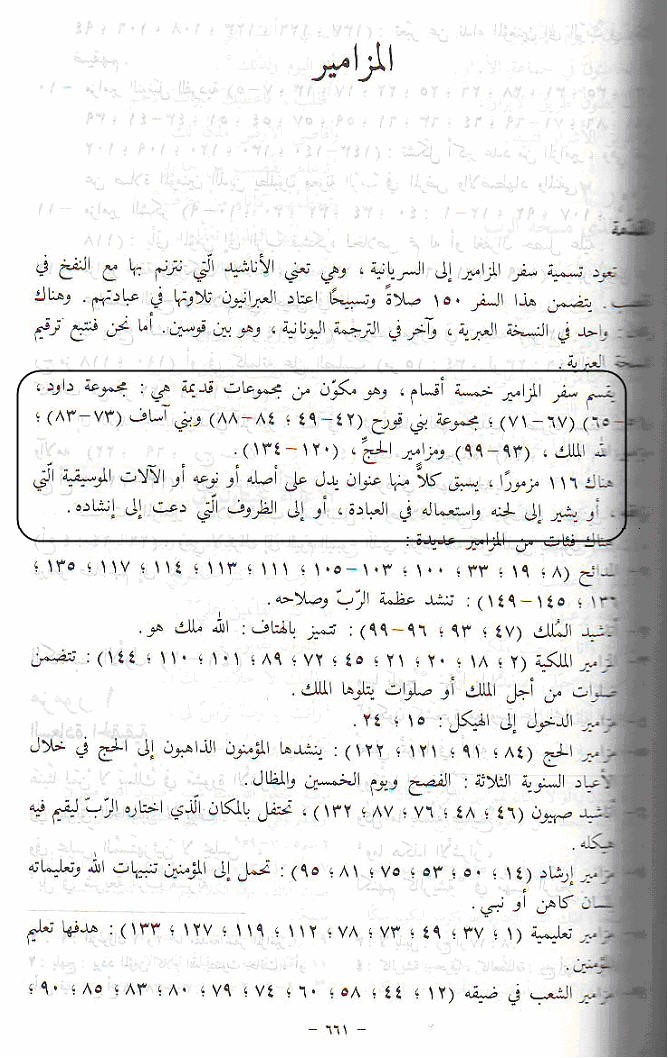 المزامير
تعود تسمية سفر المزامير إلى السريانية ، وهي تعني الأناشيد الّتي نترنم بها مع النفخ في
يتضمن هذا السفر ١٥٠ صلاةً وتسبيحًا اعتاد العبرانيون تلاوتها في عبادتهم . وهناك
واحد في النسخة العبرية ، وآخر في الترجمة اليونانية ، وهو بين قوسين . أما نحن فنتبع ترقيم
العبرية .
يقسم سفر المزامير خمسة أقسام ، وهو مكوّن من مجموعات قديمة هي : مجموعة داود ،
(٦٧–٧١) ؛ مجموعة بني قورح (٤٢–٤٩ ؛ ٨٤–٨٨) وبني آساف (٧٣–٨٣) ؛
الله الملك ، (٩٣–٩٩) ومزامير الحجّ ، (١٢٠–١٣٤) .
هناك ١١٦ مزمورًا ، يسبق كلاًّ منها عنوان يدل على أصله أو نوعه أو الآلات الموسيقية الّتي
، أو يشير إلى لحنه واستعماله في العبادة ، أو إلى الظروف الّتي دعت إلى إنشاده .
هناك فئات من المزامير عديدة :
المدائح (٨ ؛ ١٩ ؛ ٣٣ ؛ ١٠٠ ؛ ١٠٣–١٠٥ ؛ ١١١ ؛ ١١٣ ؛ ١١٤ ؛ ١١٧ ؛ ١٣٥ ؛
١٣٦ ؛ ١٤٥–١٤٩) : تنشد عظمة الرّبّ وصلاحه .
أناشيد المُلك (٤٧ ؛ ٩٣ ؛ ٩٦–٩٩) : تتميز بالهتاف : الله ملك هو .
المزامير الملكية (٢ ؛ ١٨ ؛ ٢٠ ؛ ٢١ ؛ ٤٥ ؛ ٧٢ ؛ ٨٩ ؛ ١٠١ ؛ ١١٠ ؛ ١٤٤) : تتضمن
صلوات من أجل الملك أو صلوات يتلوها الملك .
مزامير الدخول إلى الهيكل : ١٥ ؛ ٢٤ .
مزامير الحج (٨٤ ؛ ٩١ ؛ ١٢١ ؛ ١٢٢) : ينشدها المؤمنون الذاهبون إلى الحج في خلال
الأعياد السنوية الثلاثة : الفصح ويوم الخمسين والمظال .
أناشيد صهيون (٤٦ ؛ ٤٨ ؛ ٧٦ ؛ ٨٧ ؛ ١٣٢) ، تحتفل بالمكان الّذي اختاره الرّبّ ليقيم فيه
هيكله .
مزامير إرشاد (١٤ ؛ ٥٠ ؛ ٥٣ ؛ ٧٥ ؛ ٨١ ؛ ٩٥) : تحمل إلى المؤمنين تنبيهات الله وتعليماته
بلسان كاهن أو نبي .
مزامير تعليمية (١ ؛ ٣٧ ؛ ٤٩ ؛ ٧٣ ؛ ٧٨ ؛ ١١٢ ؛ ١١٩ ؛ ١٢٧ ؛ ١٣٣) : هدفها تعليم
المؤمنين .
مزامير الشعب في ضيقه (١٢ ؛ ٤٤ ؛ ٥٨ ؛ ٦٠ ؛ ٧٤ ؛ ٧٩ ؛ ٨٠ ؛ ٨٣ ؛ ٨٥ ؛ ٩٠ ؛
– ٦٦١ –